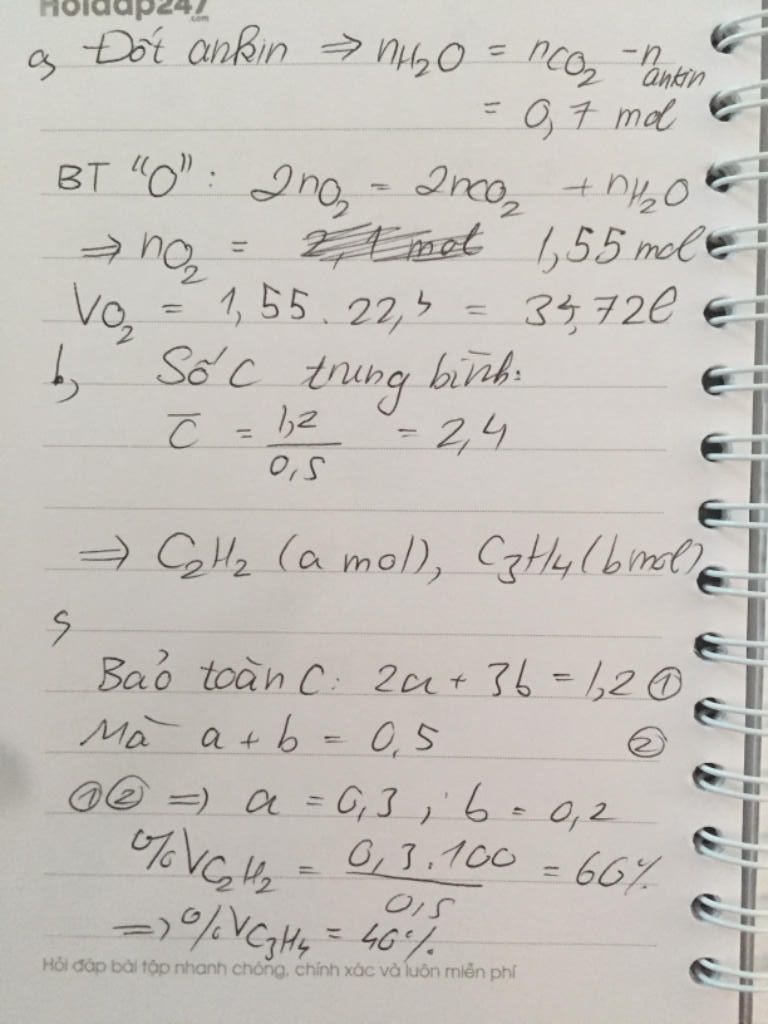 Hoidap247
.com
a, Đốt ankin ⇒ nH₂O = nCO₂ - n ankin
= 0,7 mol
BT "O": 2nO₂ = 2nCO₂ + nH₂O
⇒ nO₂ = 1,55 mol
VO₂ = 1,55.22,4 = 34,72l
b, Số C trung bình:
C̅ = 1,2/0,5 = 2,4
⇒ C₂H₂ (a mol), C₃H₄ (b mol)
Bảo toàn C: 2a + 3b = 1,2 ①
Mà a + b = 0,5 ②
①② ⇒ a = 0,3 ; b = 0,2
%VC₂H₂ = 0,3.100/0,5 = 60%
⇒ %VC₃H₄ = 40%
Hỏi đáp bài tập nhanh chóng, chính xác và luôn miễn phí